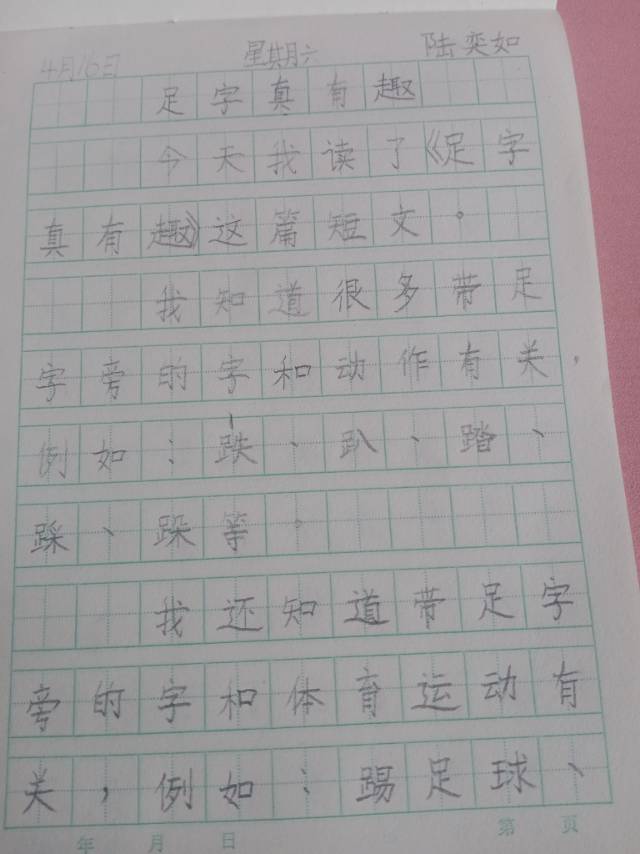 4月16日 星期六 陆奕如
足字真有趣
今天我读了《足字
真有趣》这篇短文。
我知道很多带足
字旁的字和动作有关，
例如：跌、趴、踏、
踩、跺等。
我还知道带足字
旁的字和体育运动有
关，例如：踢足球、
年 月 日 第 页